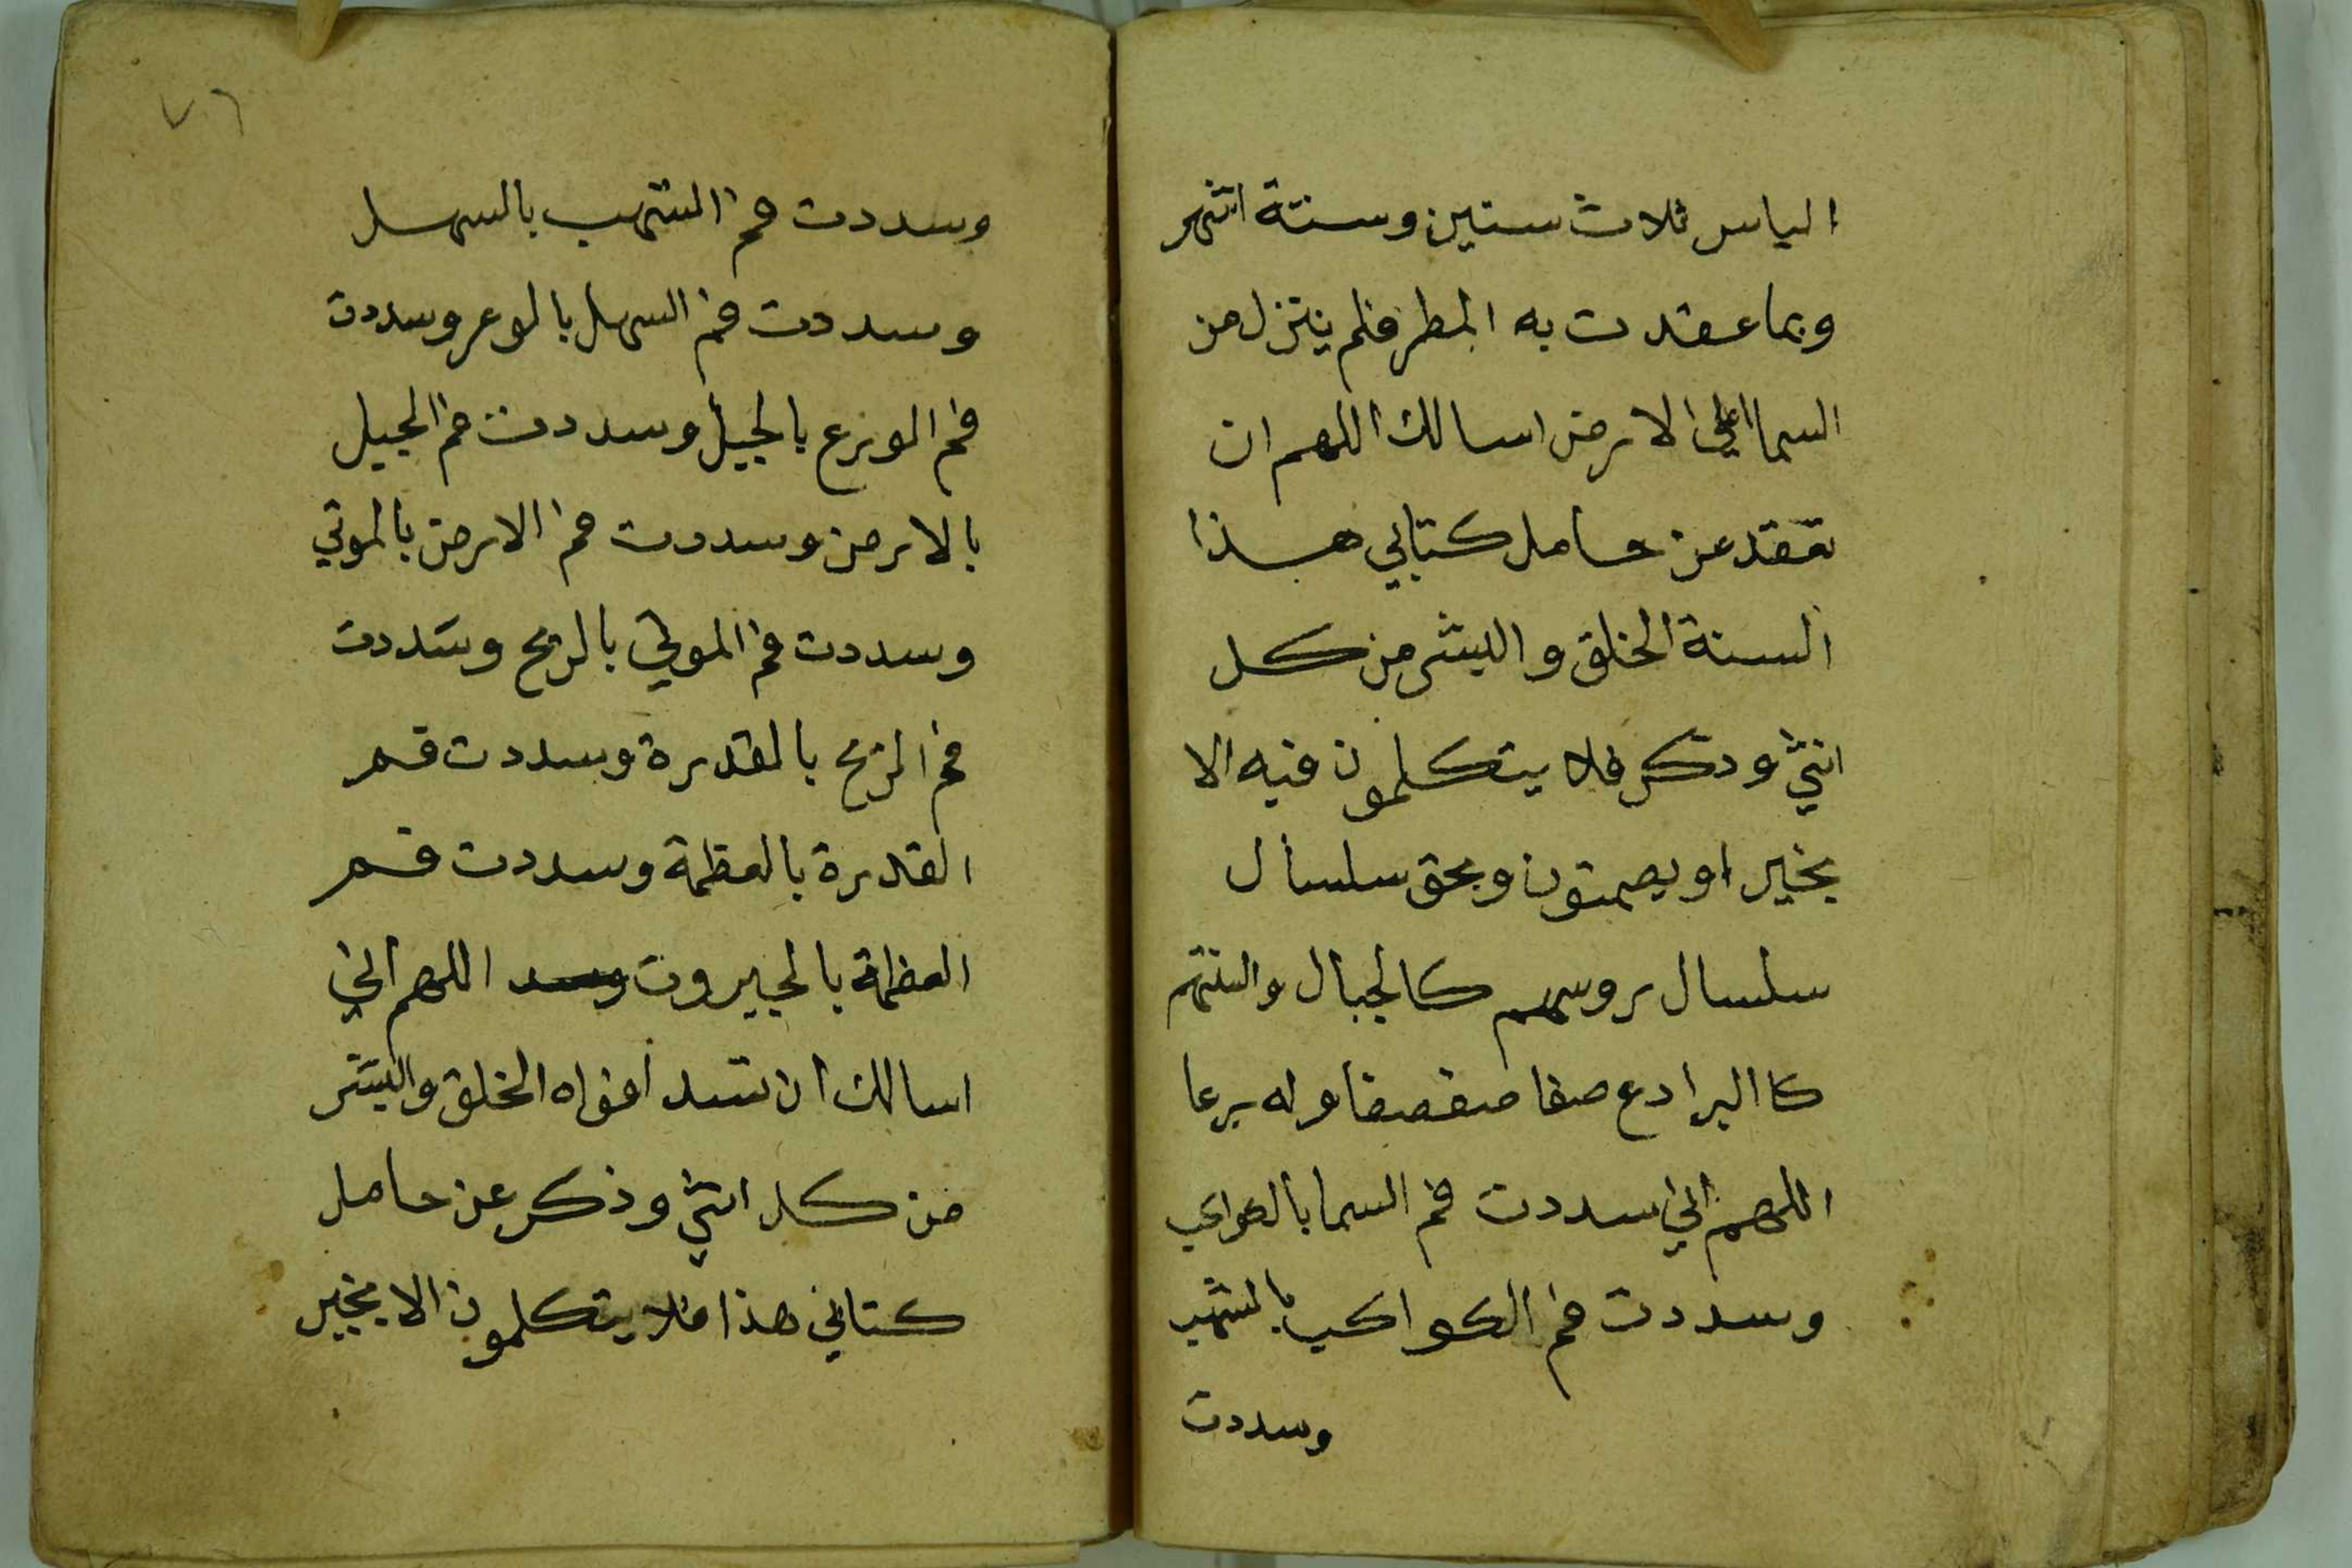 الياس ثلاث سنين وستة اشهر
وبما عقدت به المطر فلم ينزل من
السما اعلي الارض اسالك اللهم ان
تعقد عن حامل كتابي هذا
السنة الخلق والبشر من كل
انثي ودكر فلا يتكلمون فيه الا
بخير او يصمتون وبحق سلسال
سلسال روسهم كالجبال والسنتهم
كاالبرادع صفا صفصفا وله يرعا
اللهم اني سددت فم السما بالكواكب
وسددت فم الكواكب بالشهب
وسددت
٧٦
وسددت فم الشهب بالسهل
وسددت فم السهل بالوعر وسددت
فم الوعر بالجبل وسددت فم الجبل
بالارض وسددت فم الارض بالموتي
وسددت فم الموتي بالريح وسددت
فم الريح بالقدرة وسددت فم
القدرة بالعظمة وسددت فم
العظمة بالجبروت وسد اللهم اني
اسالك ان تسد افواه الخلق والبشر
من كل انثي وذكر عن حامل
كتابي هذا فلا يتكلمون الا بخير